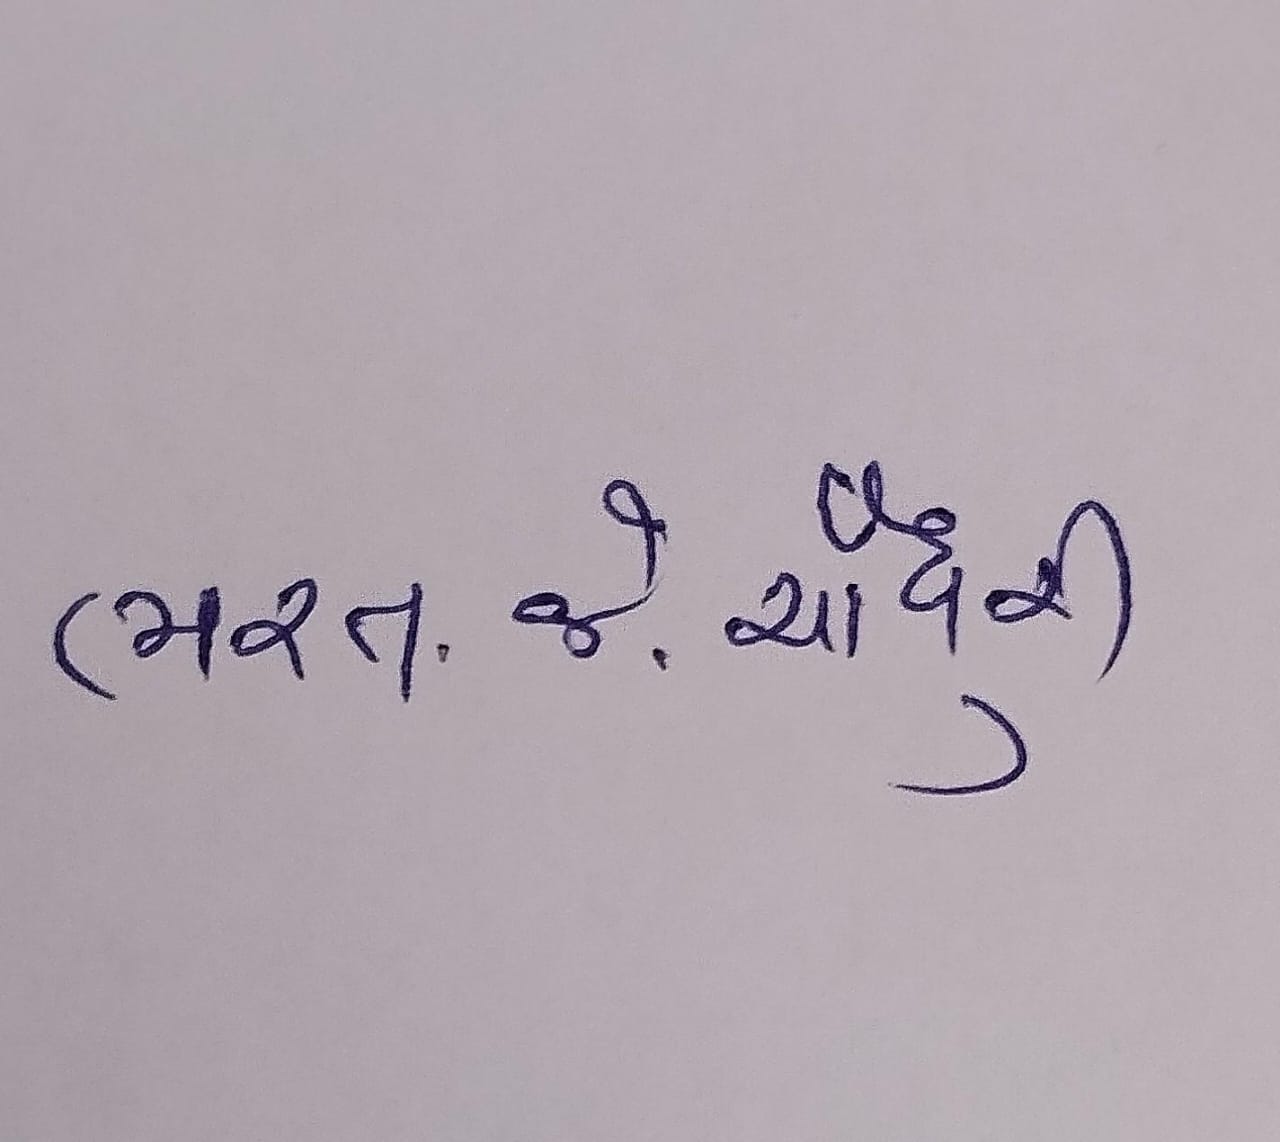 ભરત. જે. ચૌધરી